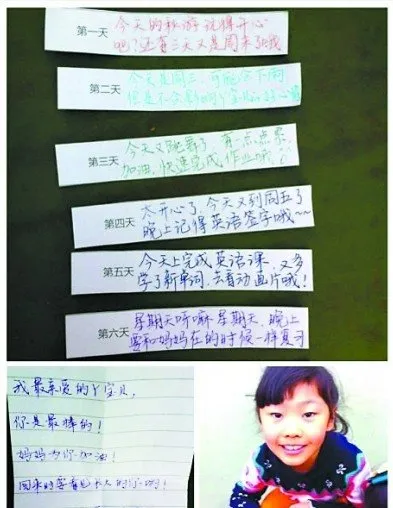 第一天
今天的秋游玩得开心
吧?还有三天又是周末了哦
第二天
今天是周三,可能会下雨,
但是不会影响
第三天
今天又跳舞了,有一点点累
加油,快速完成作业哦!
第四天
太开心了,今天又到周五了
晚上记得英语签字哦~~
第五天
今天上完成英语课,又多
学了新单词,去看动画片哦!
第六天
星期天听嘛星期天,晚上
要和妈妈在的时候一样复习
我最亲爱的丫宝贝,
你是最棒的!
妈妈为你加油!
回来时要看见长大的你哟!